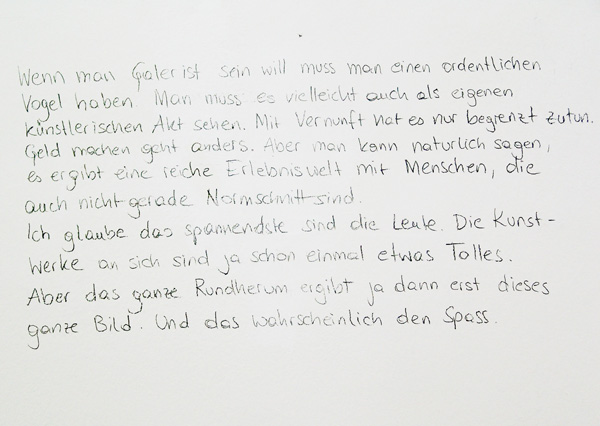 Wenn man Galerist sein will muss man einen ordentlichen
Vogel haben. Man muss es vielleicht auch als eigenen
künstlerischen Akt sehen. Mit Vernunft hat es nur begrenzt zutun.
Geld machen geht anders. Aber man kann natürlich sagen,
es ergibt eine reiche Erlebniswelt mit Menschen, die
auch nicht gerade Normschnitt sind.
Ich glaube das spannendste sind die Leute. Die Kunst-
werke an sich sind ja schon einmal etwas Tolles.
Aber das ganze Rundherum ergibt ja dann erst dieses
ganze Bild. Und das wahrscheinlich den Spass.